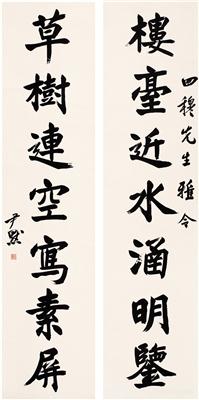 樓臺近水涵明鑒
四穆先生雅令
草樹連空寫素屏
尹默